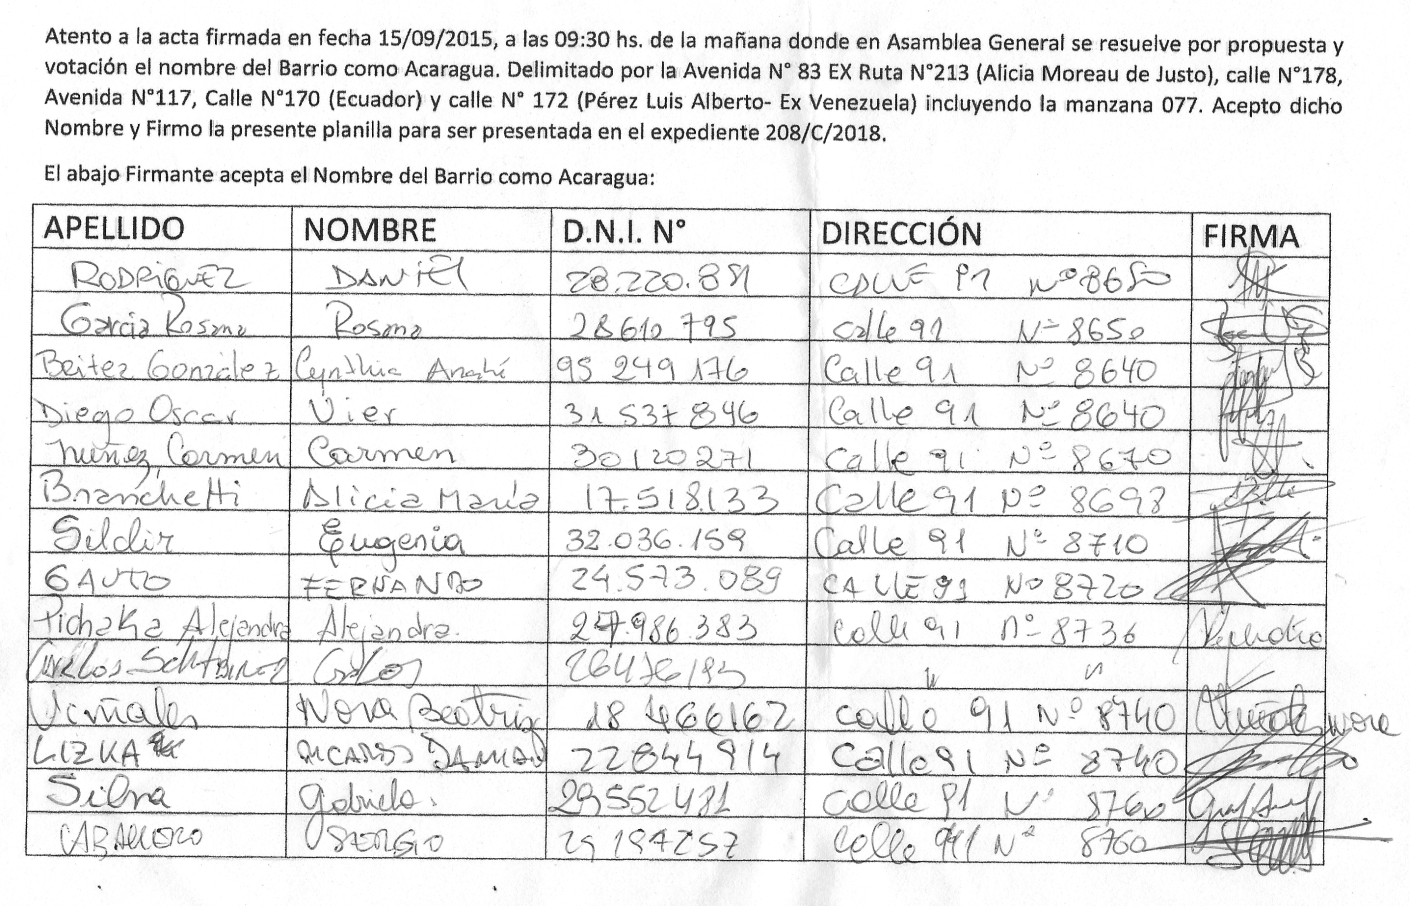 Atento a la acta firmada en fecha 15/09/2015, a las 09:30 hs. de la mañana donde en Asamblea General se resuelve por propuesta y
votación el nombre del Barrio como Acaragua. Delimitado por la Avenida N° 83 EX Ruta N°213 (Alicia Moreau de Justo), calle N°178,
Avenida N°117, Calle N°170 (Ecuador) y calle N° 172 (Pérez Luis Alberto- Ex Venezuela) incluyendo la manzana 077. Acepto dicho
Nombre y Firmo la presente planilla para ser presentada en el expediente 208/C/2018.
El abajo Firmante acepta el Nombre del Barrio como Acaragua:
APELLIDO NOMBRE D.N.I. N° DIRECCIÓN FIRMA
RODRIGUEZ DANIEL 28.220.891 CALLE 91 N° 8650
Garcia Rosana Rosana 28610 795 Calle 91 N° 8650
Beitez González Cynthia Anahí 95 249 176 Calle 91 N° 8640
Diego Oscar Vier 31 537 846 Calle 91 N° 8640
Nuñez, Carmen Carmen 30120271 Calle 91 N° 8670
Branchetti Alicia María 17.518.133 Calle 91 N° 8698
Sildir Eugenia 32.036.159 Calle 91 N° 8710
GAUTO FERNANDO 24.573.089 CALLE 91 N° 8720
Pichaka Alejandra Alejandra. 27.986.383 Calle 91 n° 8736
Carlos Carlos
Viñales Nora Beatriz 18 466162 Calle 91 N° 8740
LIZKA RICARDO DAMIAN 22844914 Calle 91 N° 8740
Silva Gabriela. 29552481 Calle 91 N° 8760
CABALLERO SERGIO 25 197257 Calle 91 N° 8760